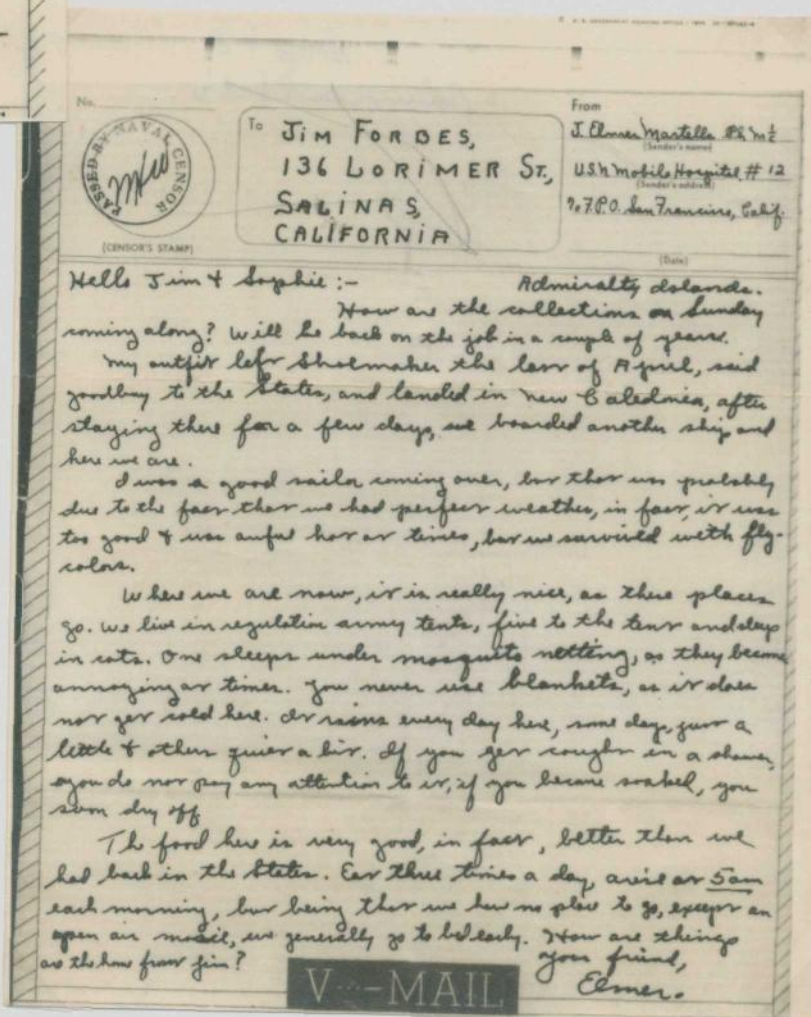 No.
PASSED BY NAVAL CENSOR
(CENSOR'S STAMP)
To JIM FORBES,
136 LORIMER ST.,
SALINAS,
CALIFORNIA
From
J. Elmer Martella Ph M ½
(Sender's name)
U.S.N Mobile Hospital # 12
(Sender's address)
℅ F.P.O. San Francisco, Calif.
(Date)
Hello Jim & Sophie :-
Admiralty Islands.
How are the collections on Sunday
coming along? Will be back on the job in a couple of years.
My outfit left Shoemaker the last of April, said
goodbuy to the States, and landed in New Caledonia, after
staying there for a few days, we boarded another ship and
here we are.
I was a good sailor coming over, but that was probably
due to the fact that we had perfect weather, in fact, it was
too good & was awful hot at times, but we survived with fly-
colors.
Where we are now, it is really nice, as these places
go. We live in regulation army tents, five to the tent and sleep
in cots. One sleeps under mosquito netting, as they become
annoying at times. You never use blankets, as it does
not get cold here. It rains every day here, some days, just a
little & others quiet a bit. If you get caught in a shower,
you do not pay any attention to it, if you become soaked, you
soon dry off
The food here is very good, in fact, better than we
had back in the States. Eat three times a day, arise at 5am
each morning, but being that we have no place to go, except an
open air movie, we generally go to bed early. How are things
on the home front Jim?
Your friend,
Elmer.
V···-MAIL